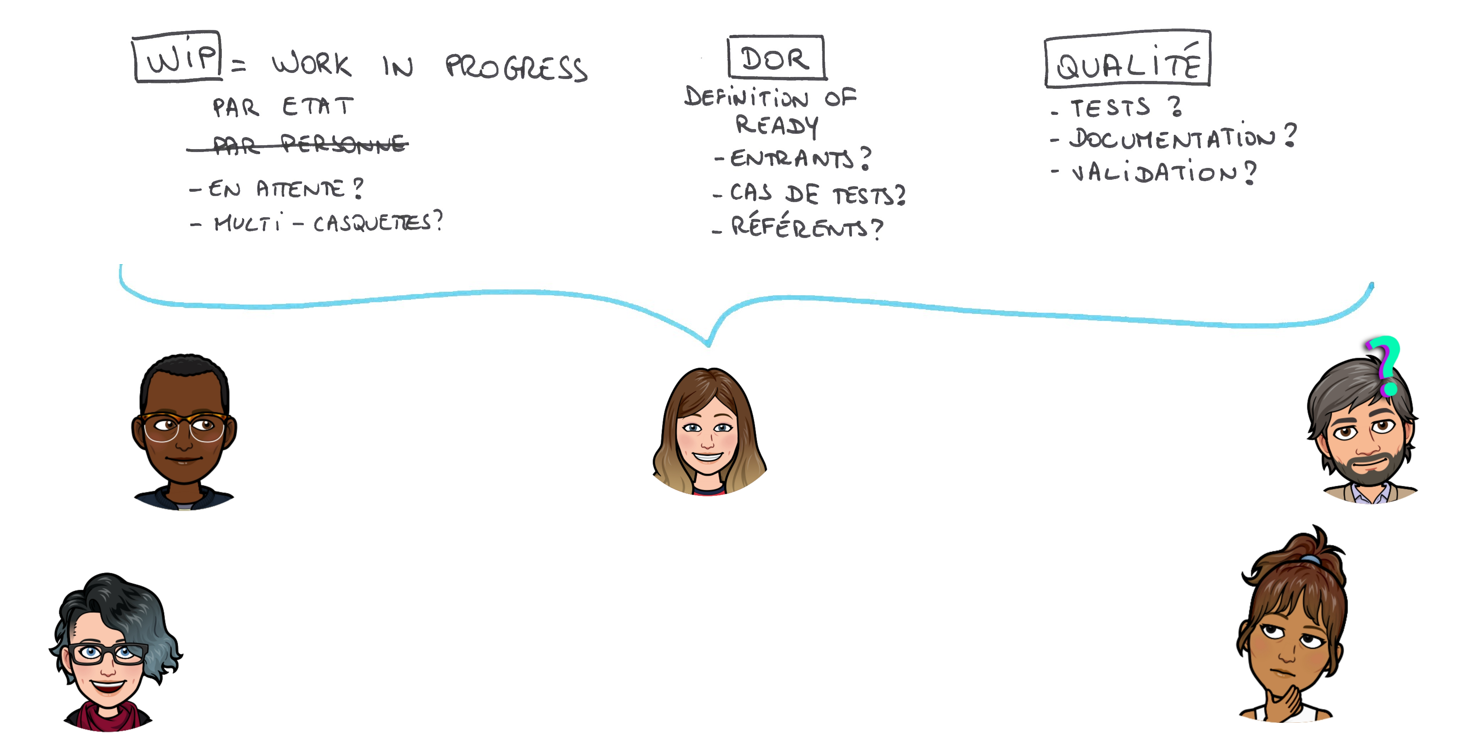 WIP = WORK IN PROGRESS
PAR ETAT
PAR PERSONNE
- EN ATTENTE ?
- MULTI - CASQUETTES ?
DOR
DEFINITION OF
READY
- ENTRANTS ?
- CAS DE TESTS ?
- RÉFÉRENTS ?
QUALITÉ
- TESTS ?
- DOCUMENTATION ?
- VALIDATION ?
?